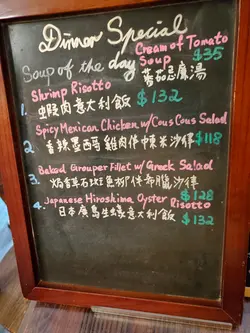 Dinner Special
Cream of Tomato
Soup $35
Soup of the day 蕃茄忌廉湯
1. Shrimp Risotto
蝦肉意大利飯 $132
Spicy Mexican Chicken w/ Cous Cous Salad
2. 香辣墨西哥雞肉伴中東米沙律 $118
Baked Grouper Fillet w/ Greek Salad
3. 焗香草石斑魚柳伴希臘沙律 $128
4. Japanese Hiroshima Oyster Risotto
日本廣島生蠔意大利飯 $132